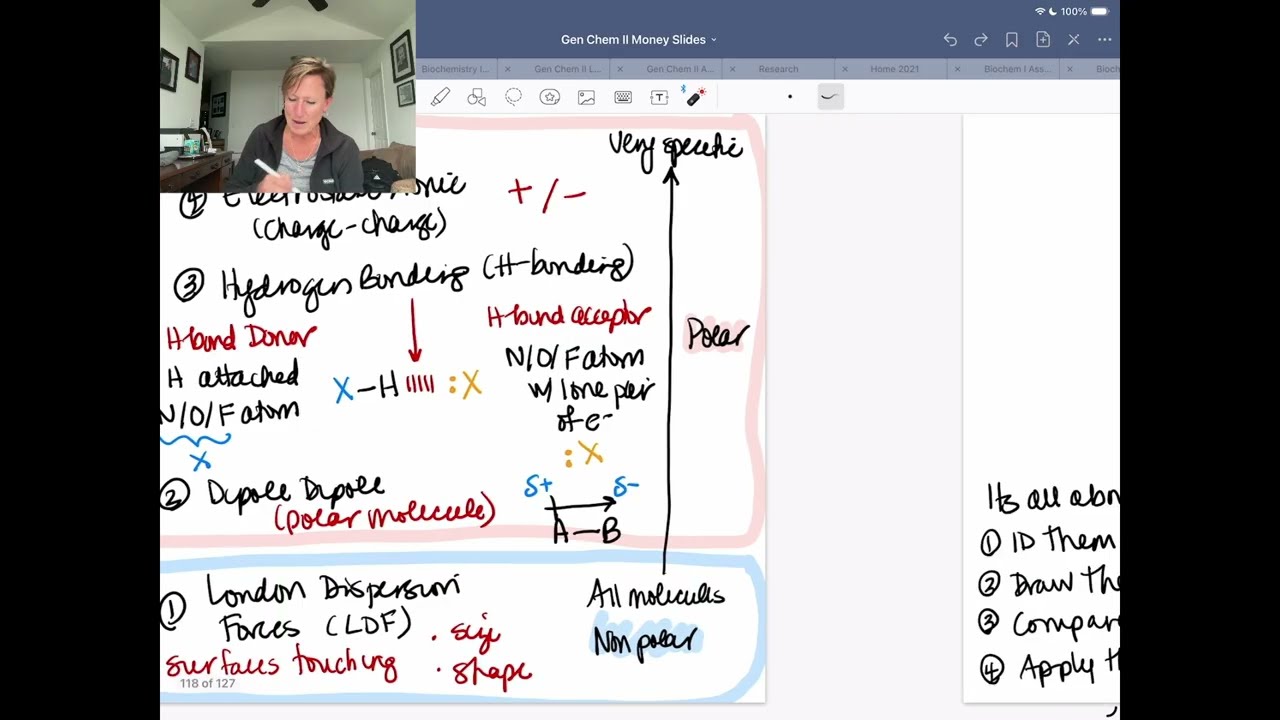 100%
Gen Chem II Money Slides
Biochemistry I...
Gen Chem II L...
Gen Chem II A...
Research
Home 2021
Biochem I Ass...
Bioch
Very specific
④
+ / -
(charge-charge)
③ Hydrogen Bonding (H-bonding)
H-bond Donor
H attached
N/O/F atom
X
X-H ||||| :X
H-bond acceptor
N/O/F atom
w/ lone pair
of e-
:X
Polar
② Dipole Dipole
(polar molecule)
δ+ δ-
A-B
① London Dispersion
Forces (LDF)
surfaces touching
• size
• shape
All molecules
Non polar
118 of 127
Its all abo
① ID them
② Draw the
③ Compar
④ Apply th